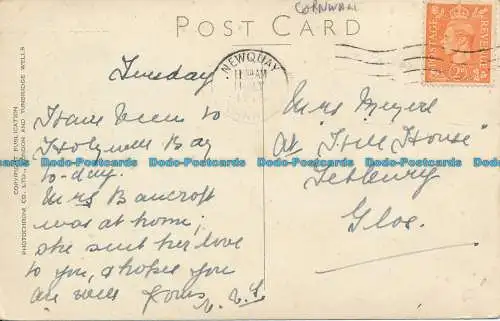 CORNWALL
POST CARD
NEWQUAY
POSTAGE REVENUE
COPYRIGHT PUBLICATION
PHOTOCHROM CO., LTD., LONDON AND TUNBRIDGE WELLS
Tuesday
Have been to
Holywell Bay
to-day.
Mrs Bancroft
was at home,
she sent her love
to you, & hopes you
are well Yours
Mrs
At "Hill House"
Tetbury
Glos.
Dodo-Postcards Dodo-Postcards Dodo-Postcards Dodo-Postcards Dodo-Postcards